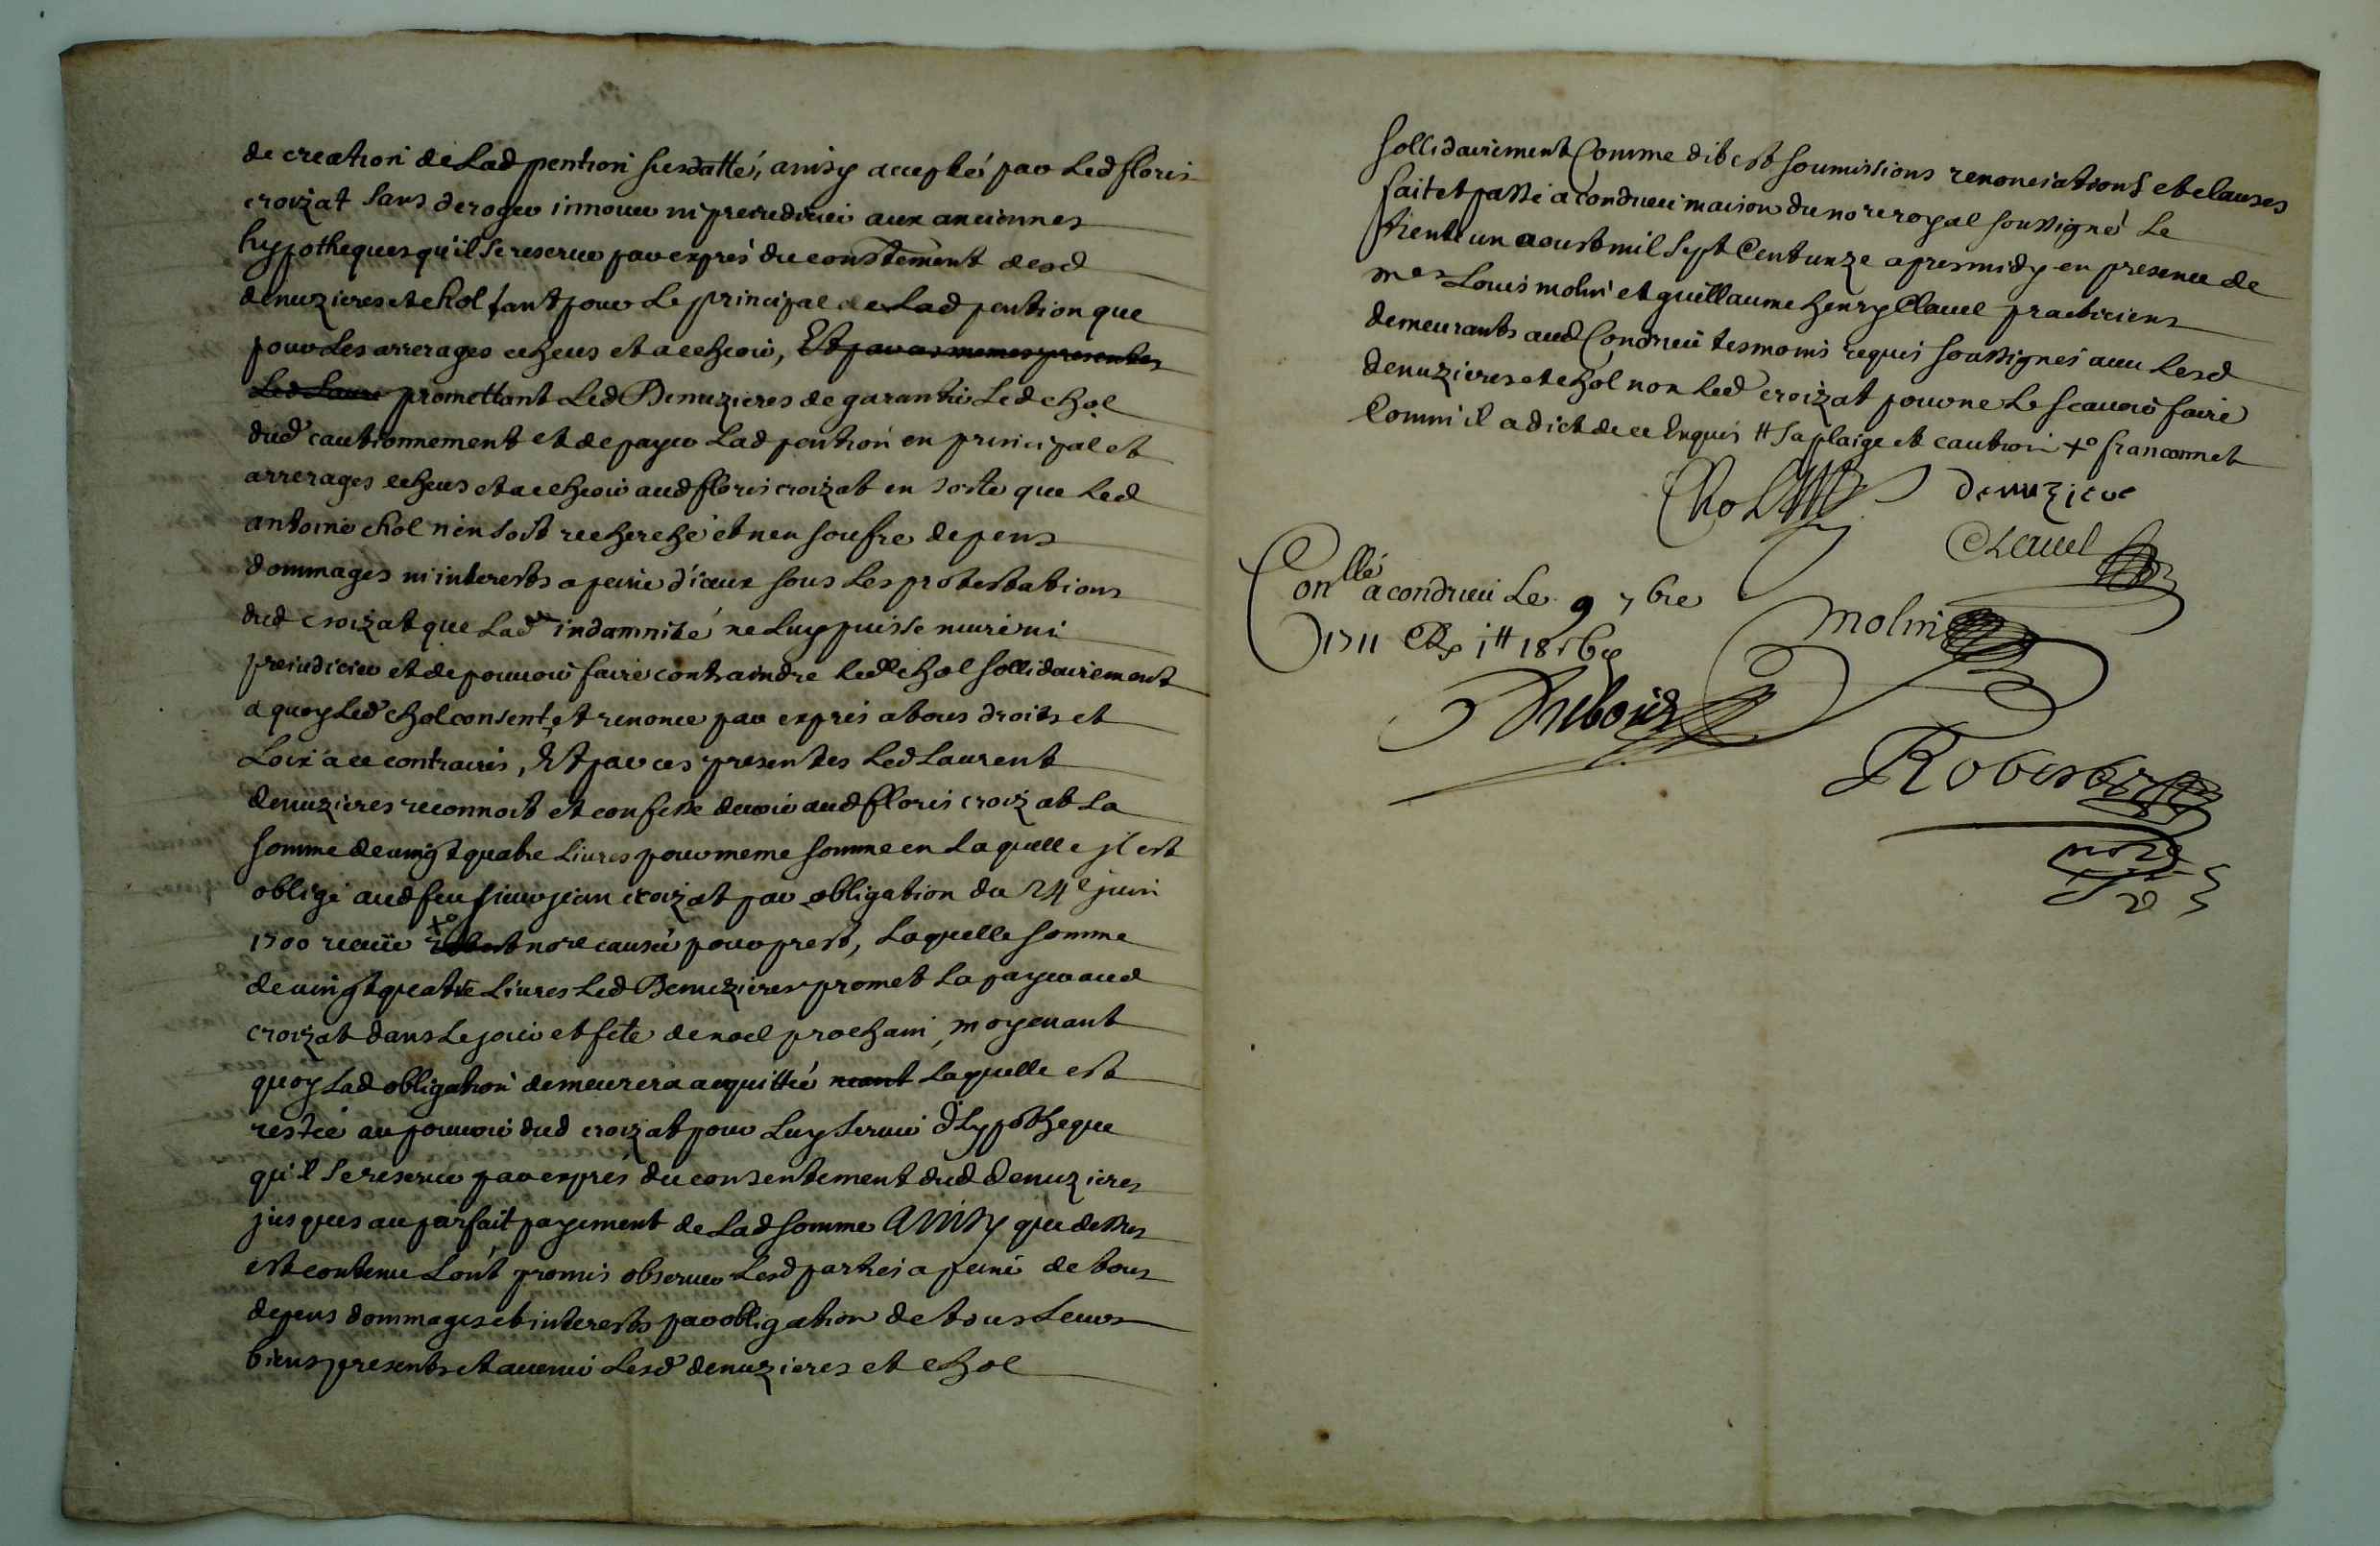 de creation de Lad pention susdatté, ainsy accepté par Led floris
croizat sans deroger innouer ni preiudicier aux anciennes
hypotheques qu'il se reserue par exprés du constement desd
denuzieres et chol tant pour Le principal de Lad pention que
pour Les arrerages echeus et a echeoir, Et par ces memes presentes
Led Laure promettant Led Denuzieres de garantir Led chol
dud cautionnement et de payer Lad pention en principal et
arrerages echeus et a echeoir aud floris croizat en sorte que Led
antoine chol n'en soit recherché et n'en soufre depens
dommages ni interests a peine d'iceux sous Les protestations
dud croizat que Lad indamnité ne Luy puisse nuire ni
preiudicier et de pouuoir faire contraindre Led chol sollidairement
a quoy Led chol consent, et renonce par exprés a tous droits et
Loix a ce contraires, Et par ces presentes Led Laurent
denuzieres reconnoit et confesse deuoir aud floris croizat La
somme de uingt quatre Liures pour meme somme en Laquelle jl est
obligé aud feu sieur jean croizat par obligation du 24e juin
1700 receüe xo nore causée pour prest, Laquelle somme
de uingt quatre Liures Led Denuzieres promet La payer aud
croizat dans Le jour et fete de noel prochain, moyenant
quoy Lad obligation demeurera acquittée Laquelle est
restée au pouuoir dud croizat pour Luy seruir d'hypotheque
qu'il se reserue par exprés du consentement dud Denuzieres
jusques au parfait payement de Lad somme Ainsy que dessus
est contenu L'ont promis obseruer Lesd parties a peine de tous
depens dommages et interests par obligation de tous Leurs
biens presents et auenir Lesd denuzieres et chol
sollidairement Comme dit est soumissions renonciations et clauses
fait et passé a condrieu maison du nore royal soussigné Le
trente un aoust mil sept Cent unze apres midy en presence de
mes Louis molin et guillaume henry Clauel practiciens
demeurants aud Condrieu tesmoins requis soussignés auec Lesd
denuzieres et chol non Led croizat pour ne Le scauoir faire
Comm'il a dict de ce Enquis # sa plaige et caution xo franconnet
Chol
denuziere
Clauel
Conllé a condrieu Le 9 7bre
1711
molin
Robert
nore